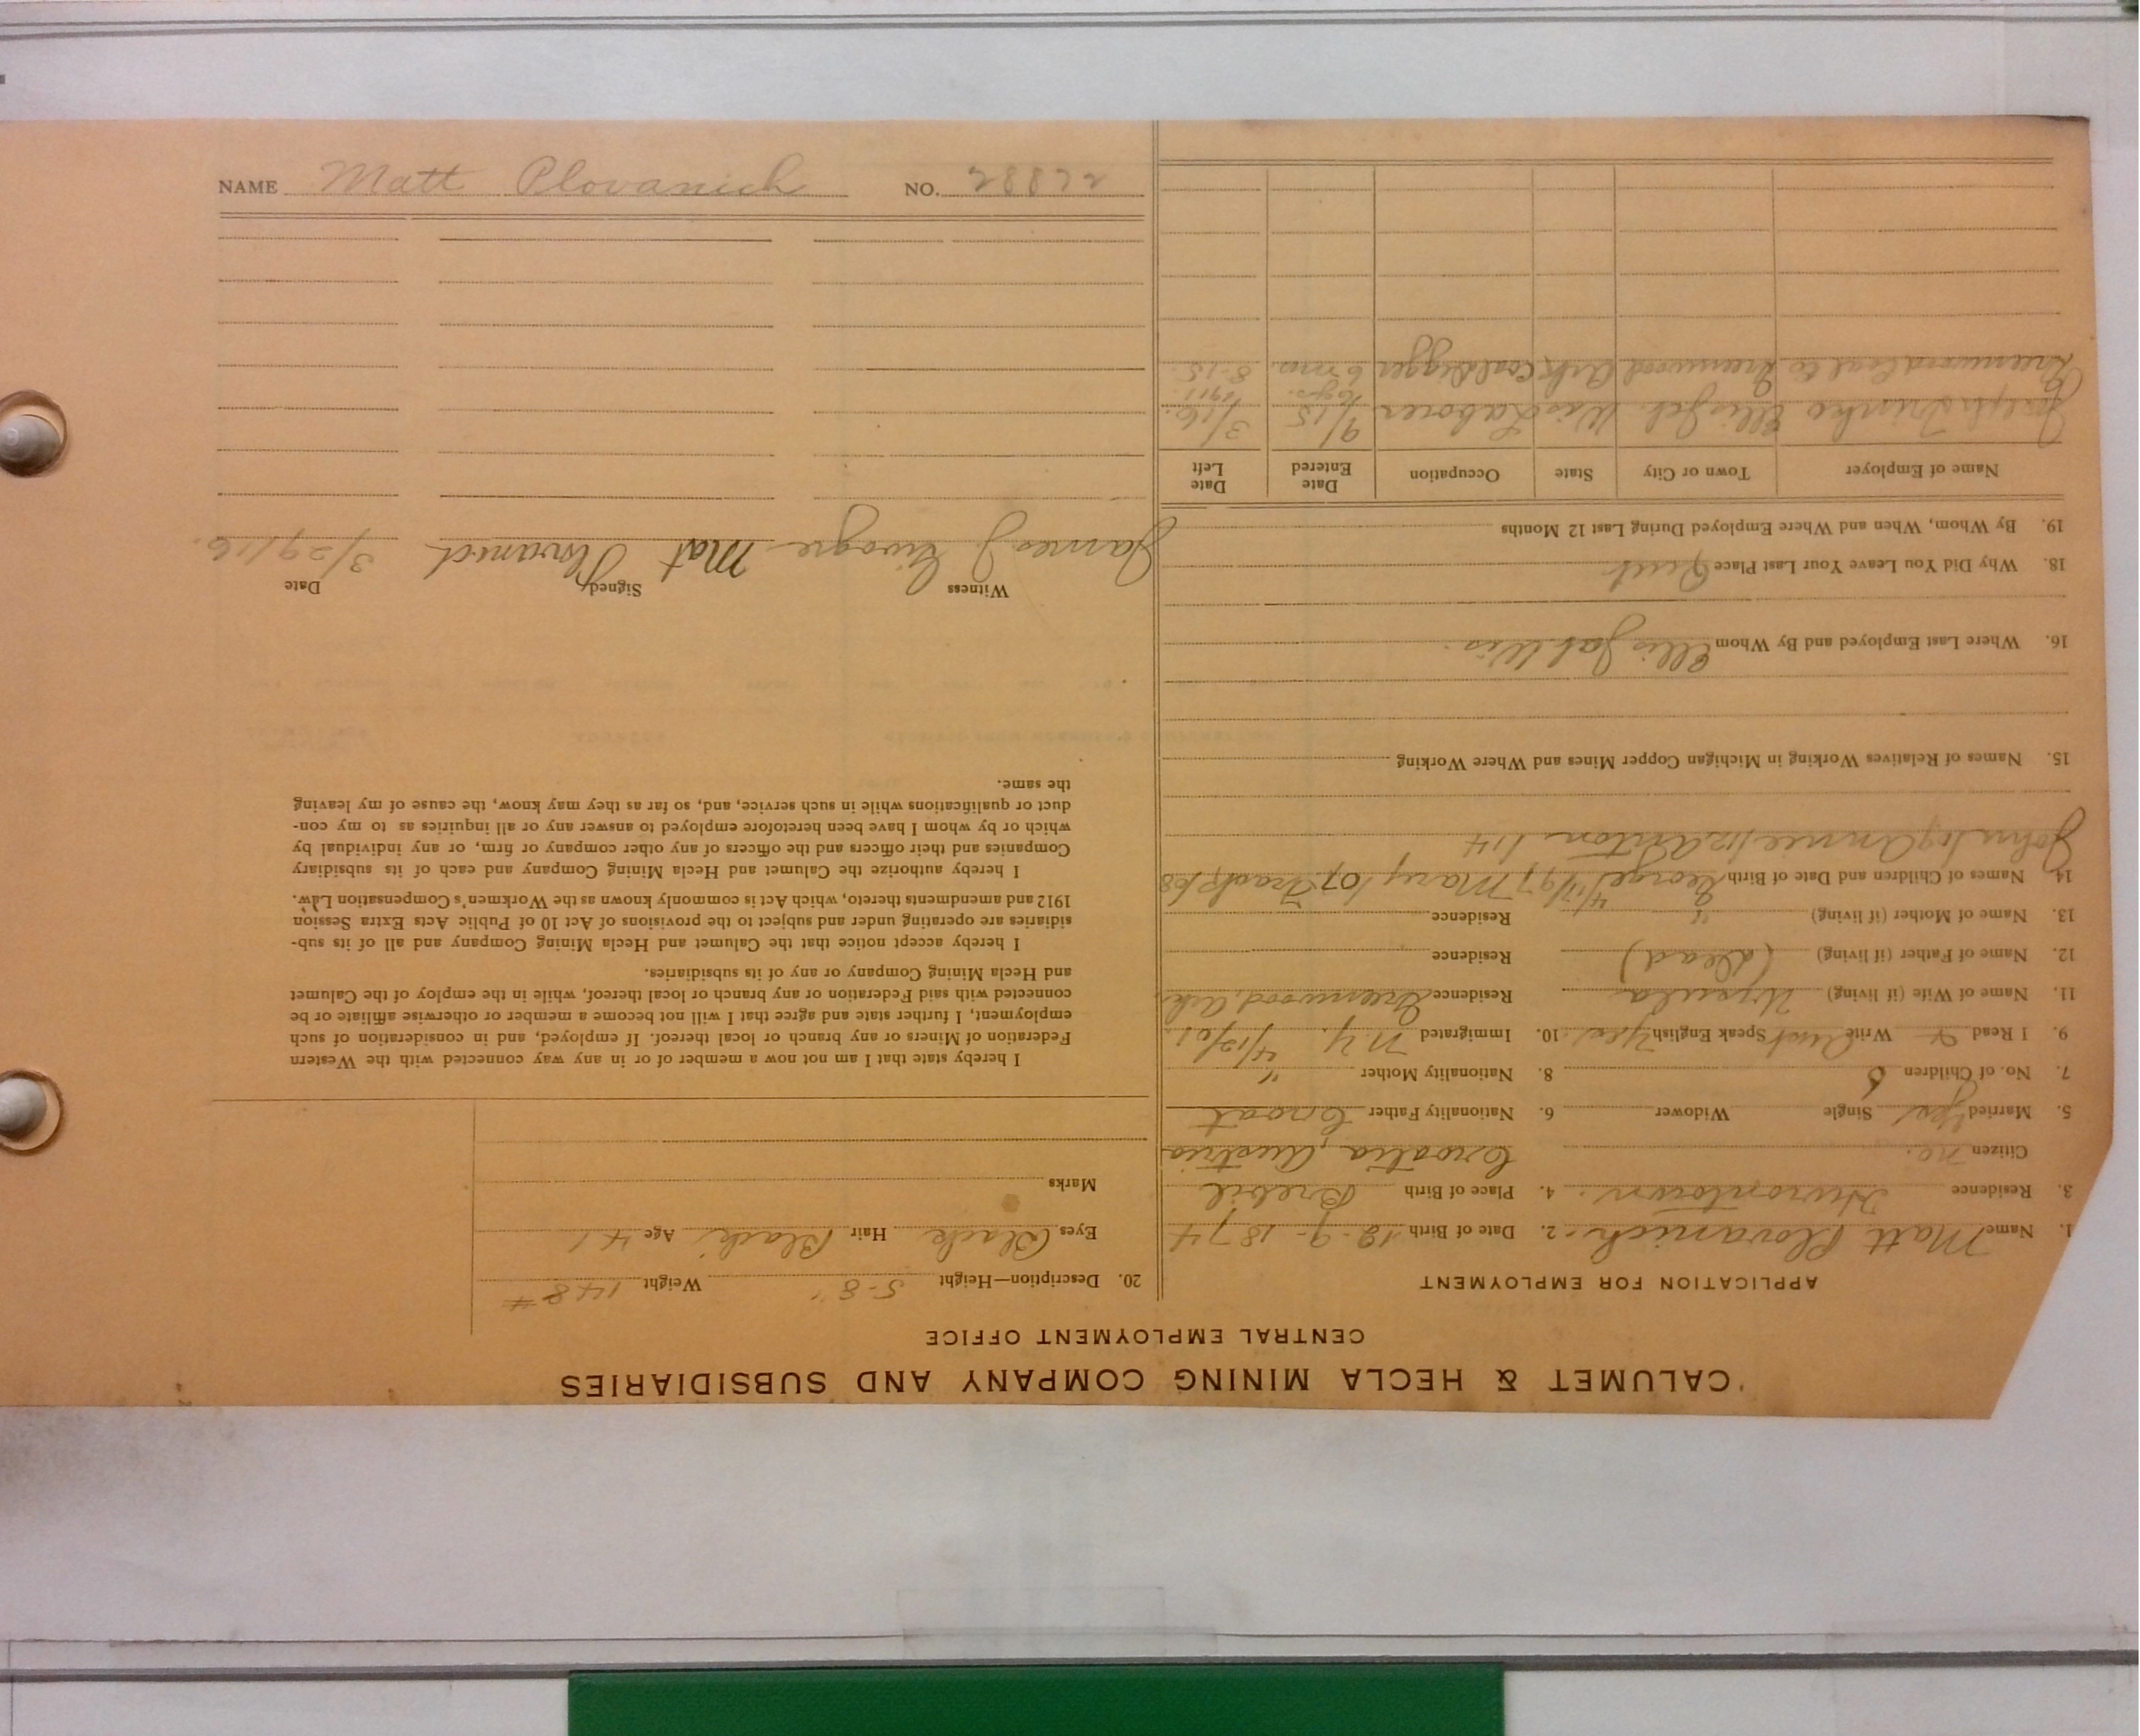 CALUMET & HECLA MINING COMPANY AND SUBSIDIARIES
CENTRAL EMPLOYMENT OFFICE
APPLICATION FOR EMPLOYMENT
1. Name Matt Plovanich. 2. Date of Birth 12-9-1874
3. Residence Hurontown. 4. Place of Birth Brebil
Citizen no. Croatia, Austria
5. Married Yes Single Widower 6. Nationality Father Croat
7. No. of Children 6 8. Nationality Mother "
9. I Read & Write Aust Speak English Yes. 10. Immigrated N.Y. 4/12/01.
11. Name of Wife (if living) Residence Greenwood, Ark.
12. Name of Father (if living) (dead) Residence
13. Name of Mother (if living) " Residence
14. Names of Children and Date of Birth George 4/17/97 Mary / 07 Frank /08
John /09 Annie /12 Anton /14
15. Names of Relatives Working in Michigan Copper Mines and Where Working
16. Where Last Employed and By Whom Ellis Jct. Wis.
18. Why Did You Leave Your Last Place Quit
19. By Whom, When and Where Employed During Last 12 Months
Name of Employer Town or City State Occupation Date Entered Date Left
Joseph Ellis Jct. Wis Laborer 9/15 3/16.
Greenwood Coal Co Greenwood Ark Coal Digger 6 mos. 8-15
20. Description—Height 5-8" Weight 148 #
Eyes Black Hair Black Age 41
Marks
I hereby state that I am not now a member of or in any way connected with the Western
Federation of Miners or any branch or local thereof. If employed, and in consideration of such
employment, I further state and agree that I will not become a member or otherwise affiliate or be
connected with said Federation or any branch or local thereof, while in the employ of the Calumet
and Hecla Mining Company or any of its subsidiaries.
I hereby accept notice that the Calumet and Hecla Mining Company and all of its sub-
sidiaries are operating under and subject to the provisions of Act 10 of Public Acts Extra Session
1912 and amendments thereto, which Act is commonly known as the Workmen's Compensation Law.
I hereby authorize the Calumet and Hecla Mining Company and each of its subsidiary
Companies and their officers and the officers of any other company or firm, or any individual by
which or by whom I have been heretofore employed to answer any or all inquiries as to my con-
duct or qualifications while in such service, and, so far as they may know, the cause of my leaving
the same.
Witness Signed Date
James J Mat Plovanich 3/29/16.
NAME Matt Plovanich NO. 28822